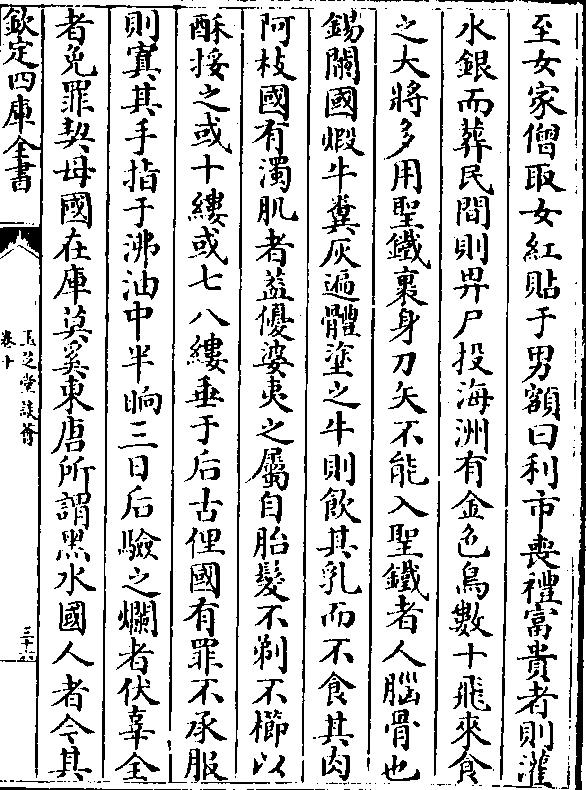 至女家僧取女紅貼于男額曰利市喪禮富貴者則灌
水銀而葬民間則舁尸投海洲有金色鳥數十飛來食
之大將多用聖鐵裹身刀矢不能入聖鐵者人腦骨也
錫闌國煆牛糞灰遍體塗之牛則飲其乳而不食其肉
阿枝國有濁肌者葢優婆夷之屬自胎髮不剃不櫛以
酥挼之或十縷或七八縷垂于后古俚國有罪不承服
則寘其手指于沸油中半晌三日后驗之爛者伏辜全
者免罪契毋國在庫莫奚東唐所謂黑水國人者令其
欽定四庫全書
玉芝堂談薈
卷十